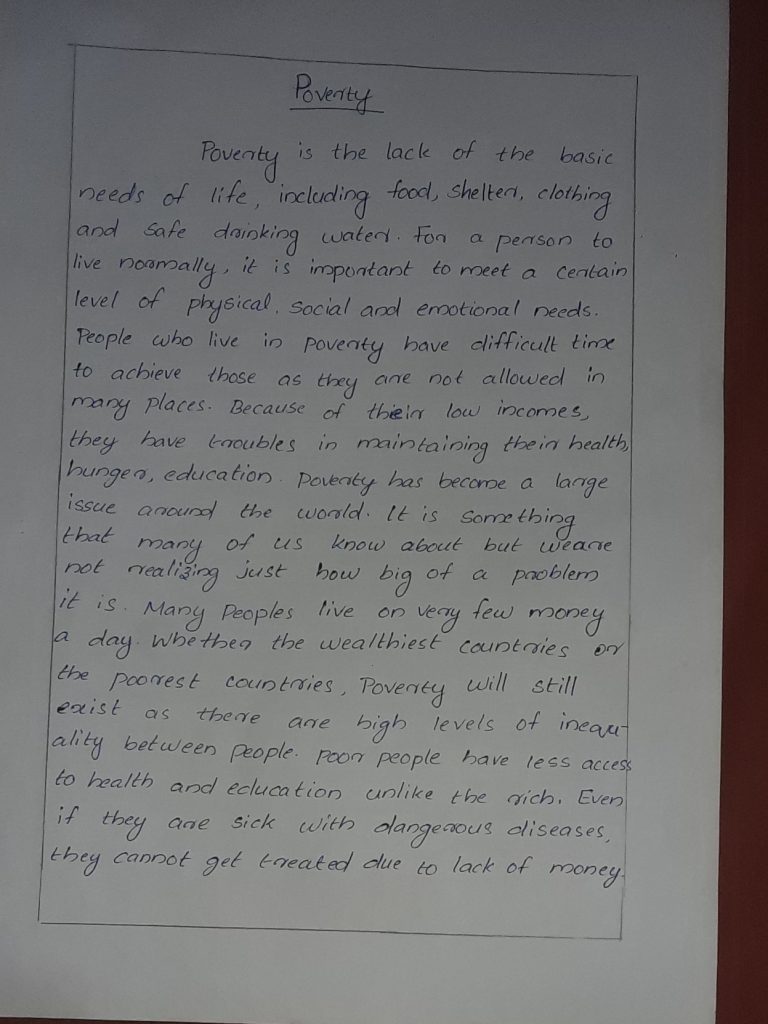 Poverty
Poverty is the lack of the basic
needs of life, including food, shelter, clothing
and safe drinking water. For a person to
live normally, it is important to meet a certain
level of physical, social and emotional needs.
People who live in poverty have difficult time
to achieve those as they are not allowed in
many places. Because of their low incomes,
they have troubles in maintaining their health,
hunger, education. Poverty has become a large
issue around the world. It is something
that many of us know about but weare
not realizing just how big of a problem
it is. Many Peoples live on very few money
a day. Whether the wealthiest countries or
the poorest countries, Poverty will still
exist as there are high levels of inequ-
ality between people. Poor people have less access
to health and education unlike the rich. Even
if they are sick with dangerous diseases,
they cannot get treated due to lack of money.